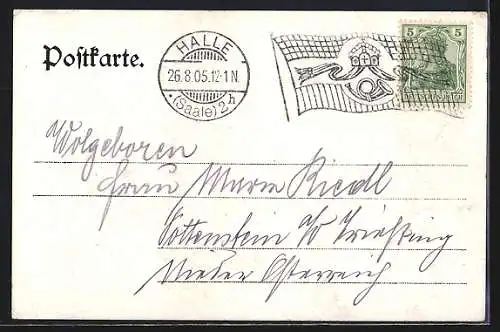 Postkarte.
HALLE
26.8.05.12-1N.
(Saale) 2h
5 5
Wolgeboren
Frau Marie Riedl
Pottenstein a/d Triesting
Nieder Österreich